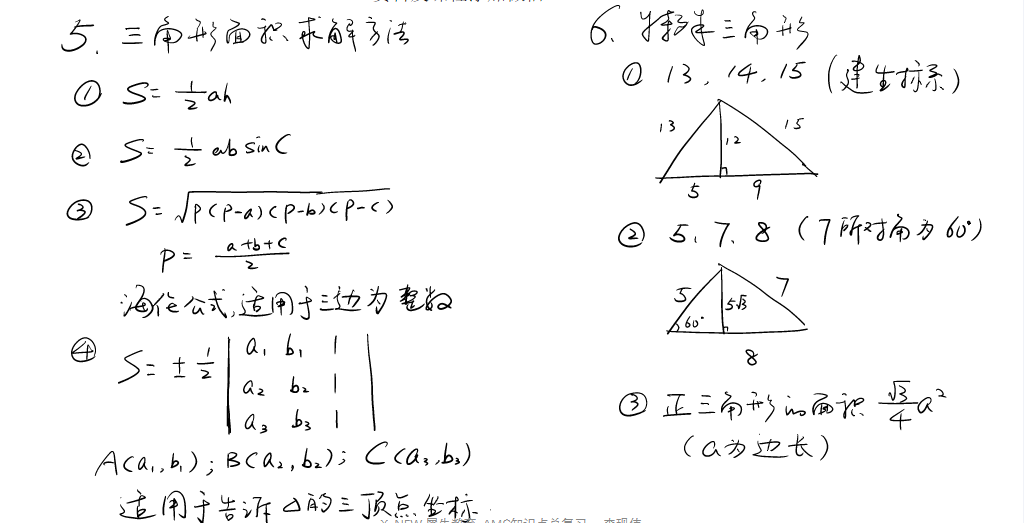 5. 三角形面积求解方法
① S= 1/2 ah
② S= 1/2 ab sin C
③ S=√P(P-a)(P-b)(P-c)
P= a+b+c/2
海伦公式,适用于三边为整数
④ S= ± 1/2 | a₁ b₁ 1 |
a₂ b₂ 1
a₃ b₃ 1
A(a₁,b₁); B(a₂,b₂); C(a₃,b₃)
适用于告诉△的三顶点坐标
6. 特殊三角形
① 13, 14, 15 (建坐标系)
13 12 15
5 9
② 5、7、8 (7所对角为60°)
5 5√3 7
60°
8
③ 正三角形的面积 √3/4 a²
(a为边长)